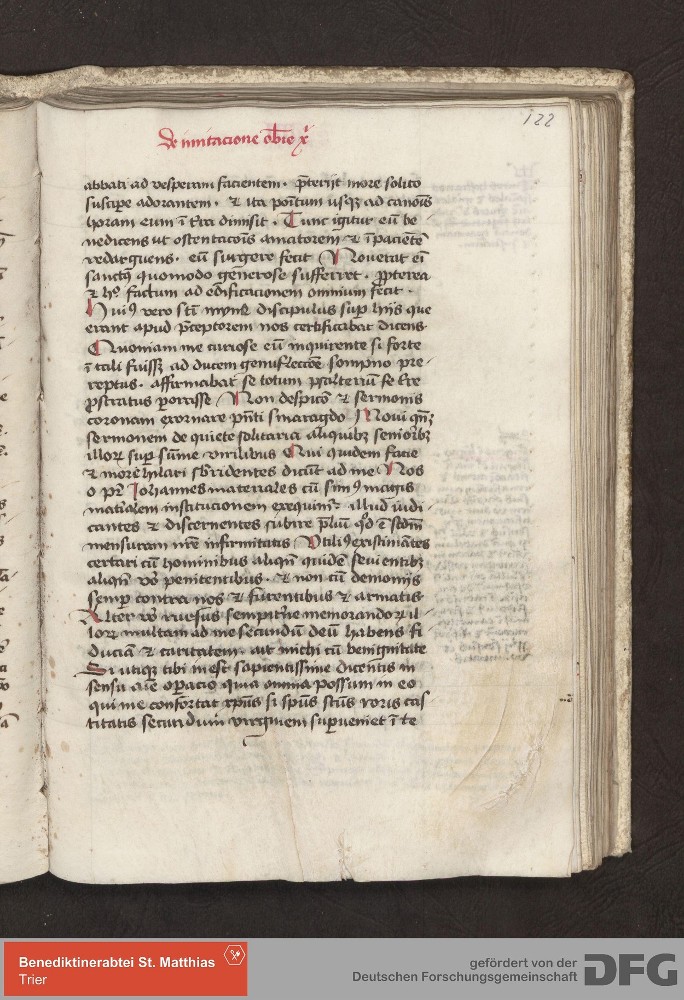 122
De imitacione obie xͥ
abbati ad vesperam facientem. p̄terijt more solito
suscipe adorantem. & ita ponitum usqꝫ ad canoīs
horam eum ī t̄ra dimisit. Tunc igitur eū be
nedicens ut ostentacoīs amatorem & īpacientē
redarguens. eū surgere fecit Noverat eī
sanctꝰ quomodo generose sufferret. ꝓpterea
& hoͦ factum ad edificacionem omnium fecit.
Huiꝰ vero sc̄ti mynē discipulus suꝑ hijs que
erant apud p̄ceptorem nos certificabat dicens
Quoniam me curiose eū inquirente si forte
ī tali fuissꝫ ad ducem genuflecc̄oē sompno pre-
reptus. affirmabat se totum psalteriū se t̄re
ꝓstratus ꝑorasse Non despicō & sermonis
coronam exornare pn̄ti smaragdo Novi qn̄ꝫ
sermonem de quiete solitaria aliquibꝫ senioribꝫ
illoꝝ suꝑ sūme virilibus Qui quidem facie
& more hilari sb̄ridentes dicūt ad me Nos
o pr̄ Iohannes materiales cū simꝰ magis
mat̄ialem institucionem exequimr̄ illud iudi-
cantes & discernentes subire p̄liū qd̄ ē scd̄m
mensuram nr̄e infirmitatis Utiliꝰ existimātes
certari cū hominibus aliqn̄ quidē seuientibꝫ
aliqn̄ vō penitentibus. & non cū demonijs
semꝑ contra nos & furentibus & armatis
Alter vō rursus sempit̄ne memorandoꝝ il-
loꝝ multam ad me secundū deū habens fi
duciā & caritatem. ait michi cū benignitate
Si utique tibi inest sapientissime dicentis in
sensu aīe oꝑacio quia omnia possum in eo
qui me confortat xp̄us si sp̄us sc̄tus roris cas
titatis secuti dum virginem suꝑveniet ī te
Benediktinerabtei St. Matthias
Trier
gefördert von der
Deutschen Forschungsgemeinschaft DFG